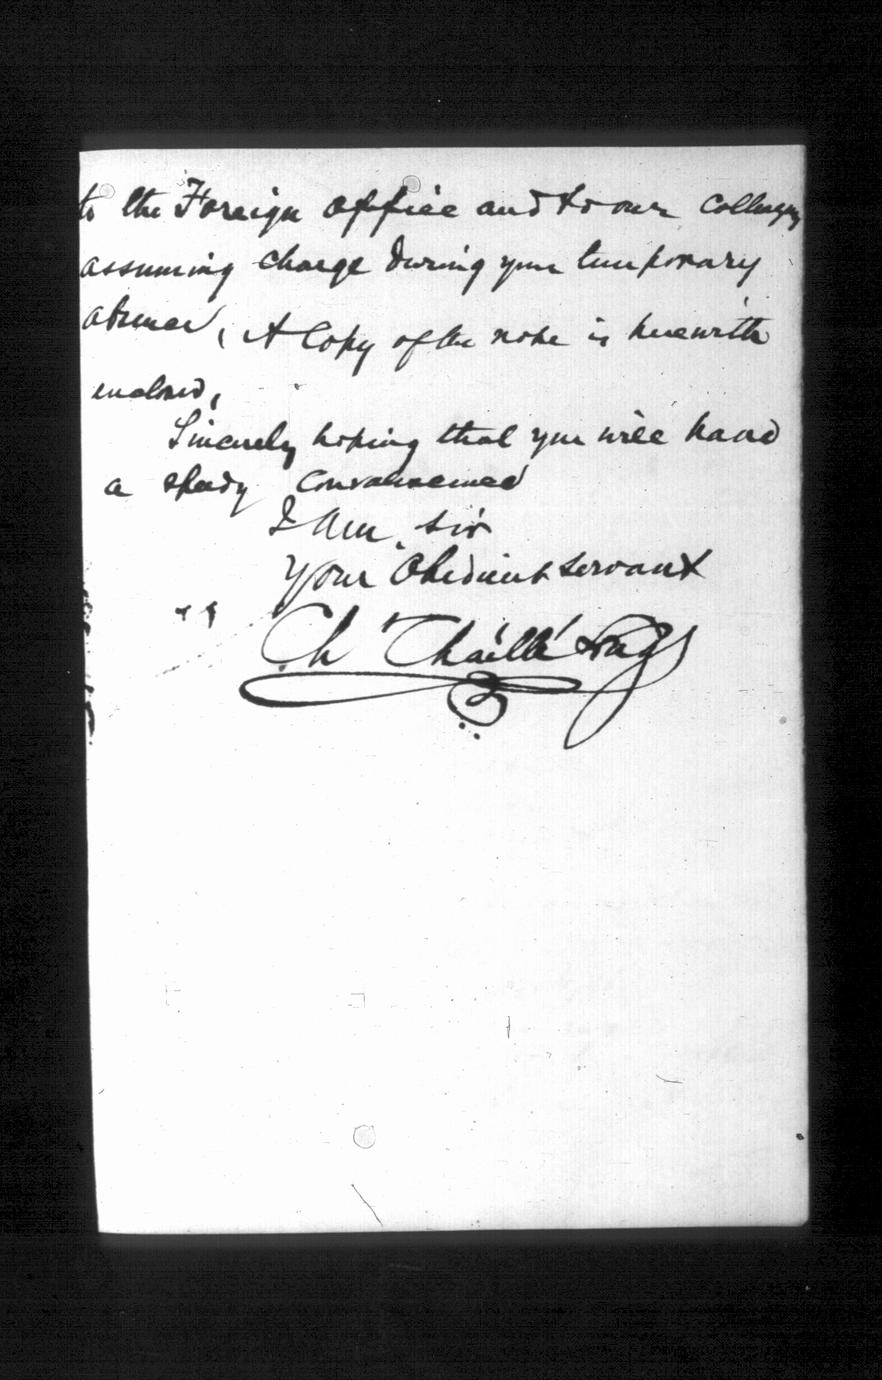 to the Foreign Office and to our colleagues
assuming charge during your temporary
absence, A Copy of the note is herewith
enclosed,
Sincerely hoping that you will have
a speedy convalescence
I am, Sir
Your Obedient Servant
Ch Chaillé Long